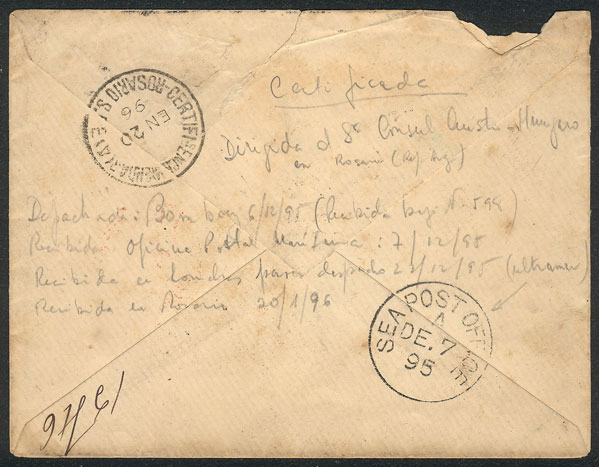 Certificada
ROSARIO S.
EN 20
96
Dirigida al Sr Consul Austro-Hungaro
en Rosario (Rep Arg)
Depachada: Bombay 6/12/95 (Recibida bajo N° 598
Recibida oficina Postal Maritima: 7/12/95
Recibida en Londres para despacho 23/12/95 (ultramar)
Recibida en Rosario 20/1/96
SEA POST OFFICE
A
DE. 7
95